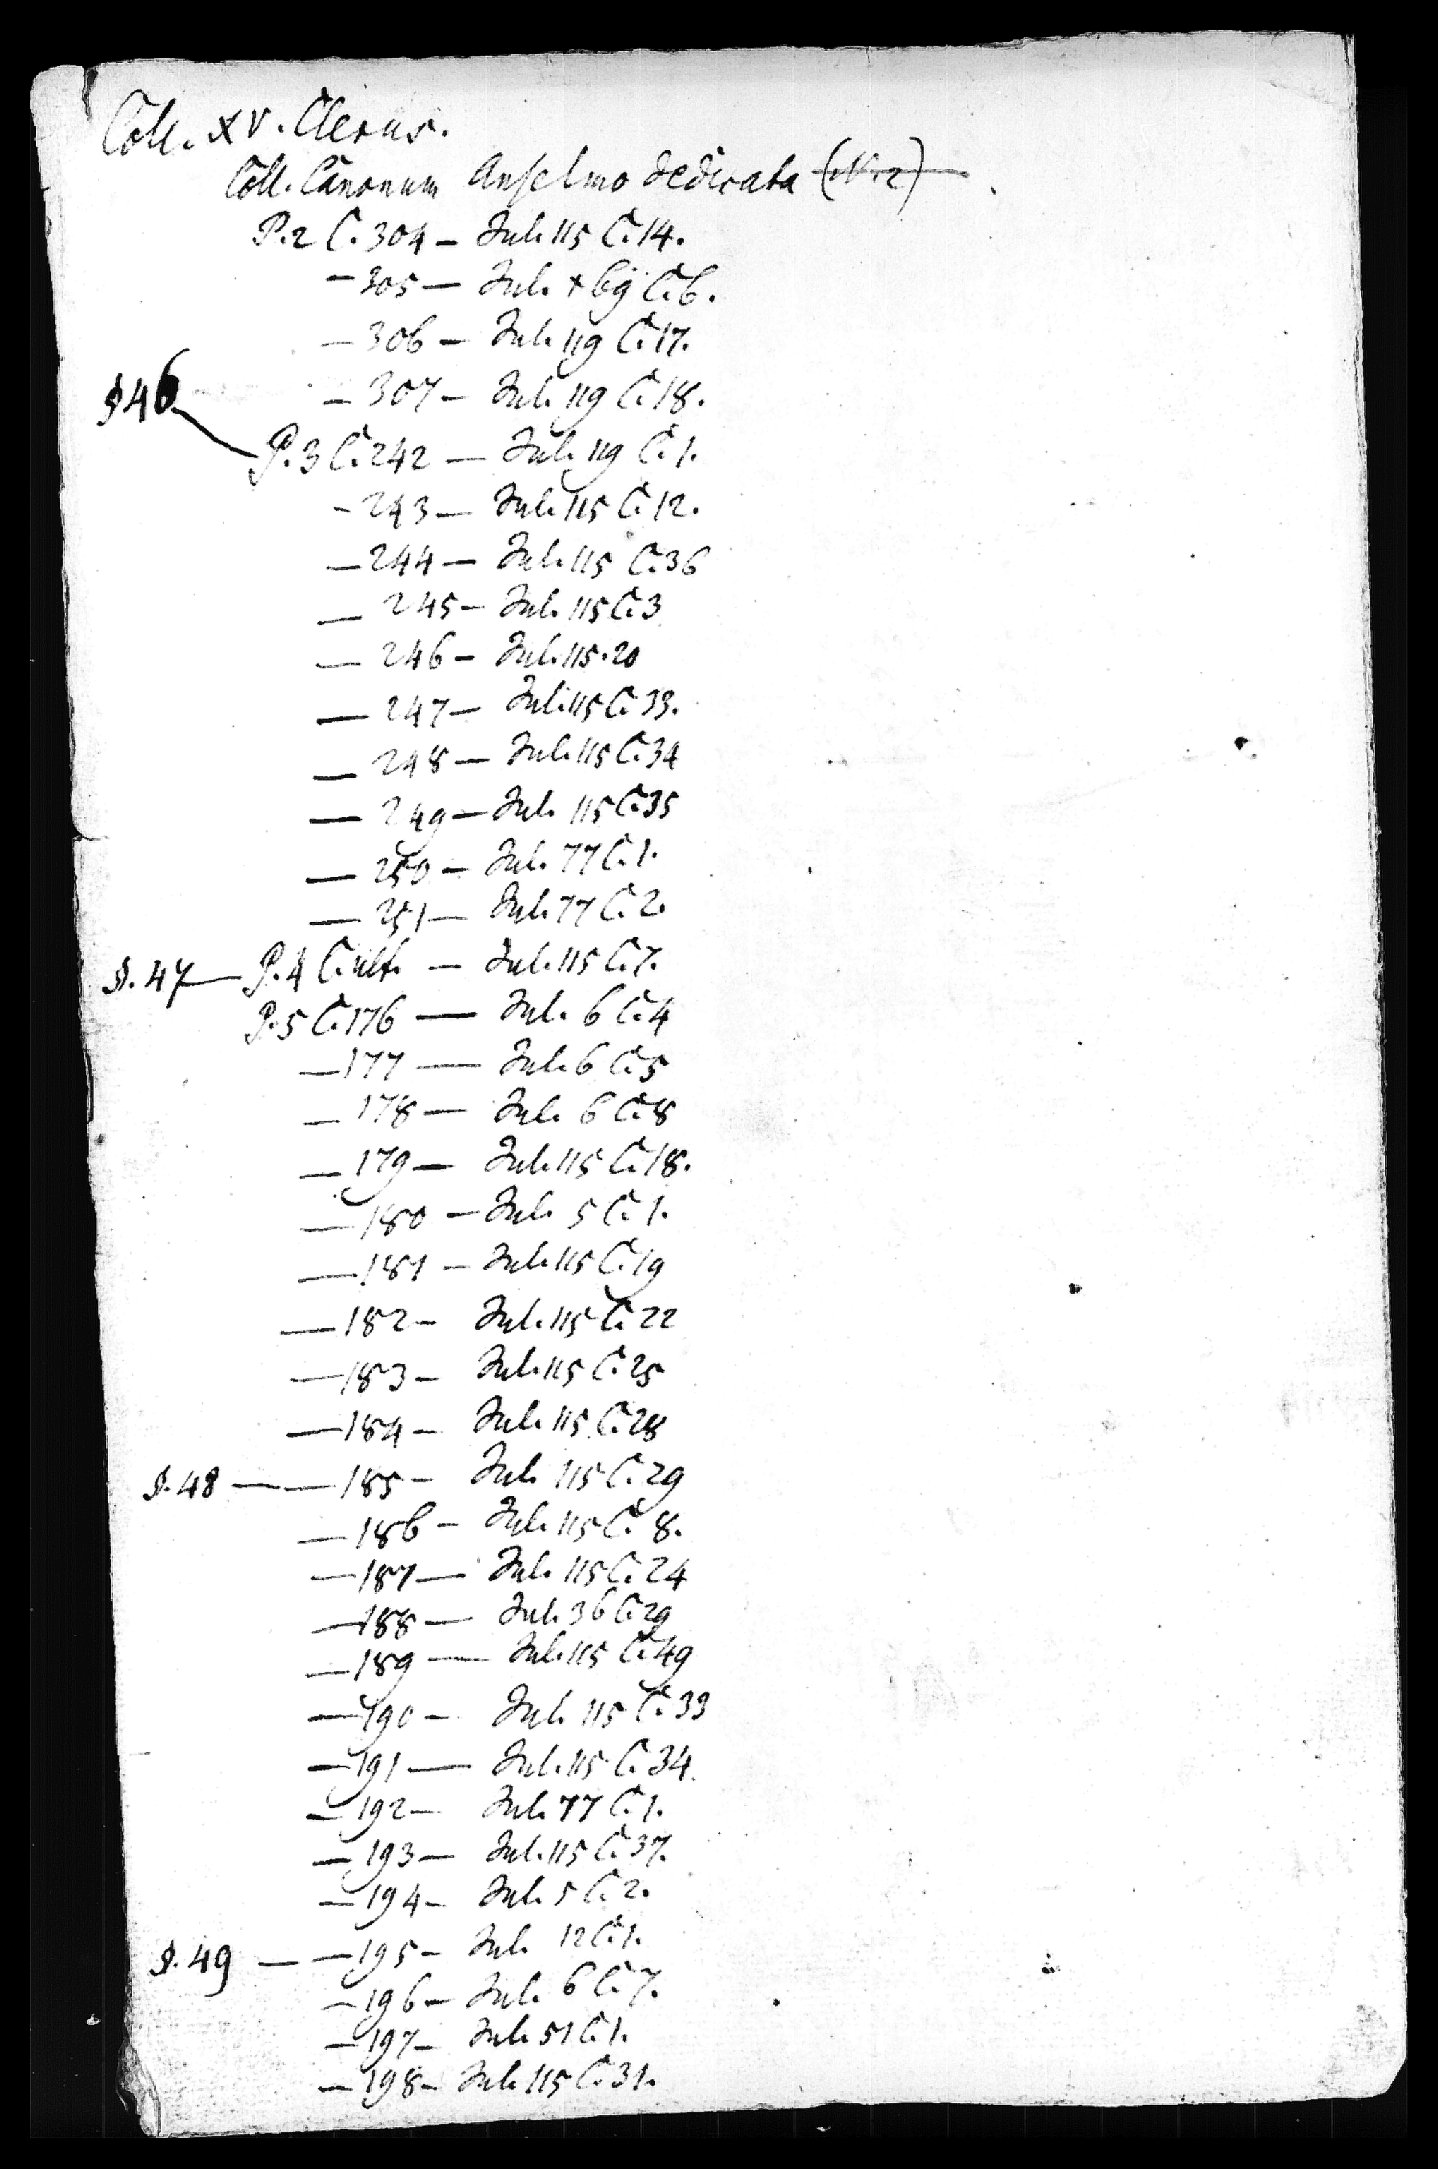 Coll. XV. Clerus.
Coll. Canonum Anselmo dedicata (N. 2)
P. 2 C. 304 – Jul. 115 C. 14.
– 305 – Jul. C. 6.
– 306 – Jul. 119 C. 17.
– 307 – Jul. 119 C. 18.
§ 46 P. 3 C. 242 – Jul. 119 C. 1.
– 243 – Jul. 115 C. 12.
– 244 – Jul. 115 C. 36
– 245 – Jul. 115 C. 3
– 246 – Jul. 115. 20
– 247 – Jul. 115 C. 33.
– 248 – Jul. 115 C. 34
– 249 – Jul. 115 C. 35
– 250 – Jul. 77 C. 1.
– 251 – Jul. 77 C. 2.
§. 47 – P. 4 C. ult. – Jul. 115 C. 7.
P. 5 C. 176 – Jul. 6 C. 4
– 177 – Jul. 6 C. 5
– 178 – Jul. 6 C. 8
– 179 – Jul. 115 C. 18.
– 180 – Jul. 5 C. 1.
– 181 – Jul. 115 C. 19
– 182 – Jul. 115 C. 22
– 183 – Jul. 115 C. 25
– 184 – Jul. 115 C. 28
§. 48 – – 185 – Jul. 115 C. 29
– 186 – Jul. 115 C. 8.
– 187 – Jul. 115 C. 24
– 188 – Jul. 36 C. 29
– 189 – Jul. 115 C. 49
– 190 – Jul. 115 C. 33
– 191 – Jul. 115 C. 34
– 192 – Jul. 77 C. 1.
– 193 – Jul. 115 C. 37.
– 194 – Jul. 5 C. 2.
§. 49 – – 195 – Jul. 12 C. 1.
– 196 – Jul. 6 C. 7.
– 197 – Jul. 51 C. 1.
– 198 – Jul. 115 C. 31.